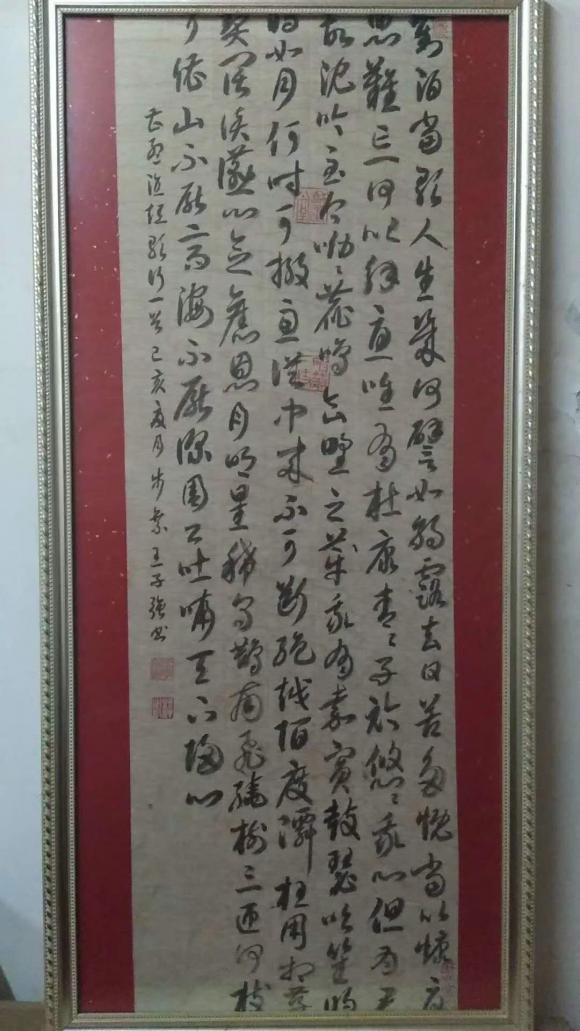 對酒當歌人生幾何譬如朝露去日苦多慨當以慷憂
思難忘何以解憂唯有杜康青〻子衿悠〻我心但為君
故沈吟至今呦〻鹿鳴食野之苹我有嘉賓鼓瑟吹笙明
明如月何時可掇憂從中來不可斷絕越陌度阡枉用相存
契闊談讌心念舊恩月明星稀烏鵲南飛繞樹三匝何枝
可依山不厭高海不厭深周公吐哺天下歸心
短歌行一首己亥夏月王子強書